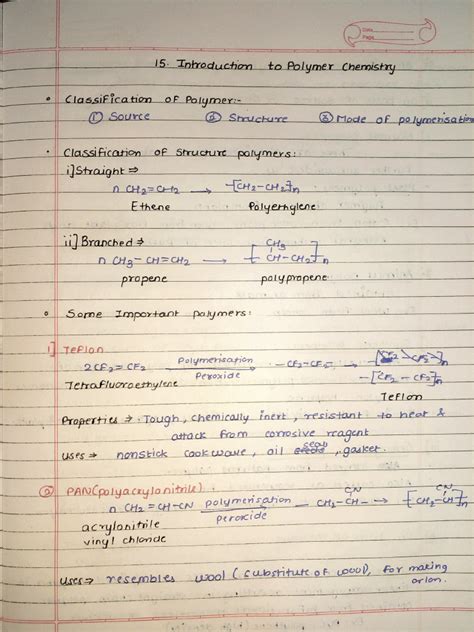 Date
Page
15. Introduction to Polymer Chemistry
• Classification of Polymer:-
① Source ② Structure ③ Mode of polymerisation
• Classification of Structure polymers:
i] Straight ⇒
n CH2=CH2 → -[CH2-CH2]n
Ethene Polyethylene
ii] Branched ⇒
CH3
n CH3-CH=CH2 → [CH-CH2]n
propene polypropene
• Some Important polymers:
1] Teflon
2CF2=CF2 Polymerisation Peroxide → -CF2-CF2- → -[CF2-CF2]n
Tetrafluoroethylene -[CF2-CF2]n
Teflon
Properties → Tough, chemically inert, resistant to heat &
attack from corrosive reagent
uses → nonstick cookwave, oil seals, gasket.
② PAN(polyacrylonitrile)
CN CN
n CH2=CH-CN polymerisation peroxide → CH2-CH- → [CH2-CH]n
acrylonitrile
vinyl chloride
uses → resembles wool (substitute of wool), for making
orlon.